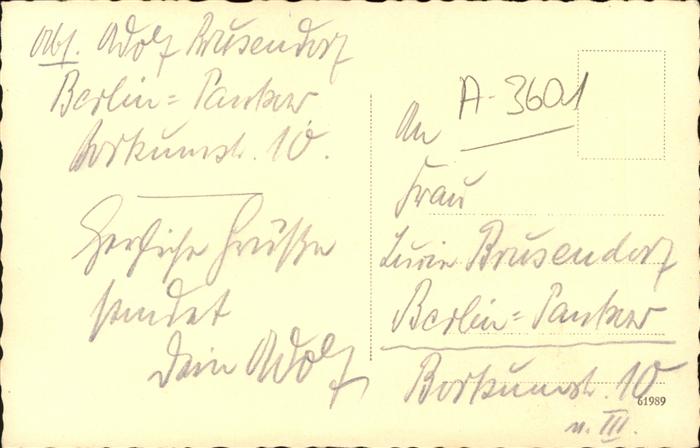 Abs. Adolf Brusendorf
Berlin=Pankow
Borkumstr. 10.
Herzliche Grüße
sendet
Dein Adolf
A-3601
An
Frau
Brusendorf
Berlin=Pankow
Borkumstr. 10
v. III.
61989